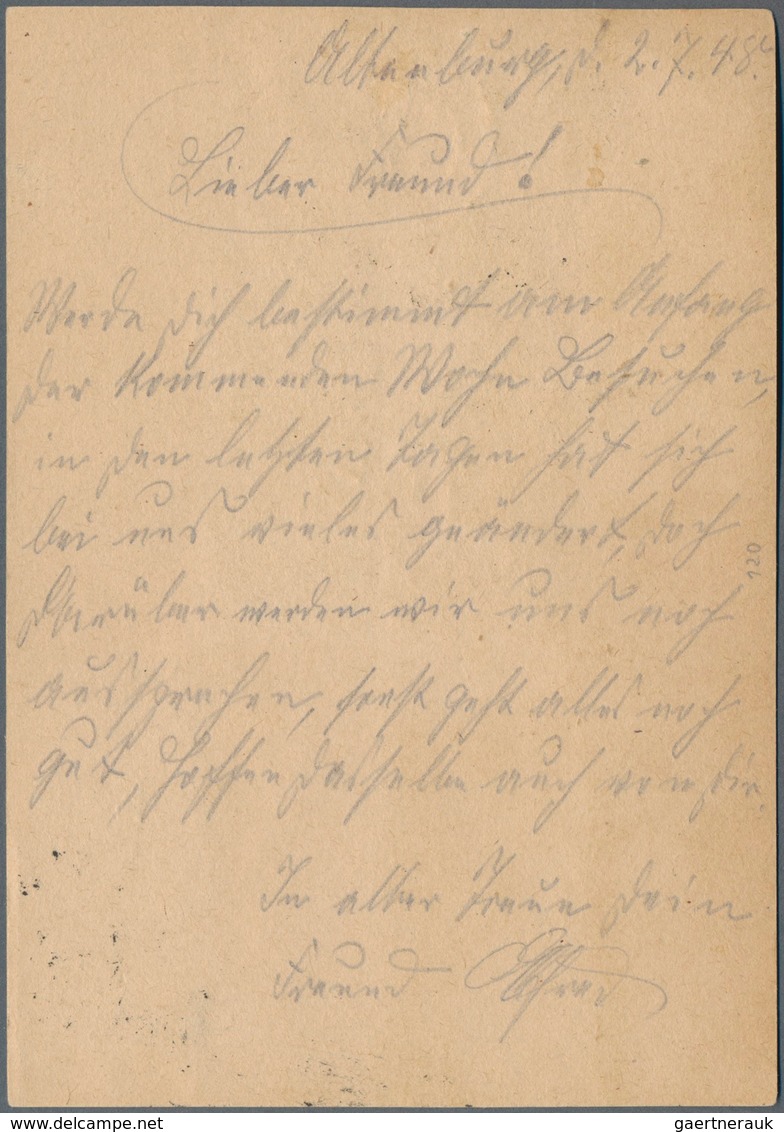 Altenburg, d. 2.7.48.
Lieber Freund!
Werde dich bestimmt am Anfang
der kommenden Woche Besuchen,
in den letzten Tagen hat sich
bei uns vieles geändert, doch
Darüber werden wir uns noch
aussprechen, sonst geht alles noch
gut, hoffen dasselbe auch von dir.
In alter Treue Dein
Freund Alfred
120
gaertnerauk